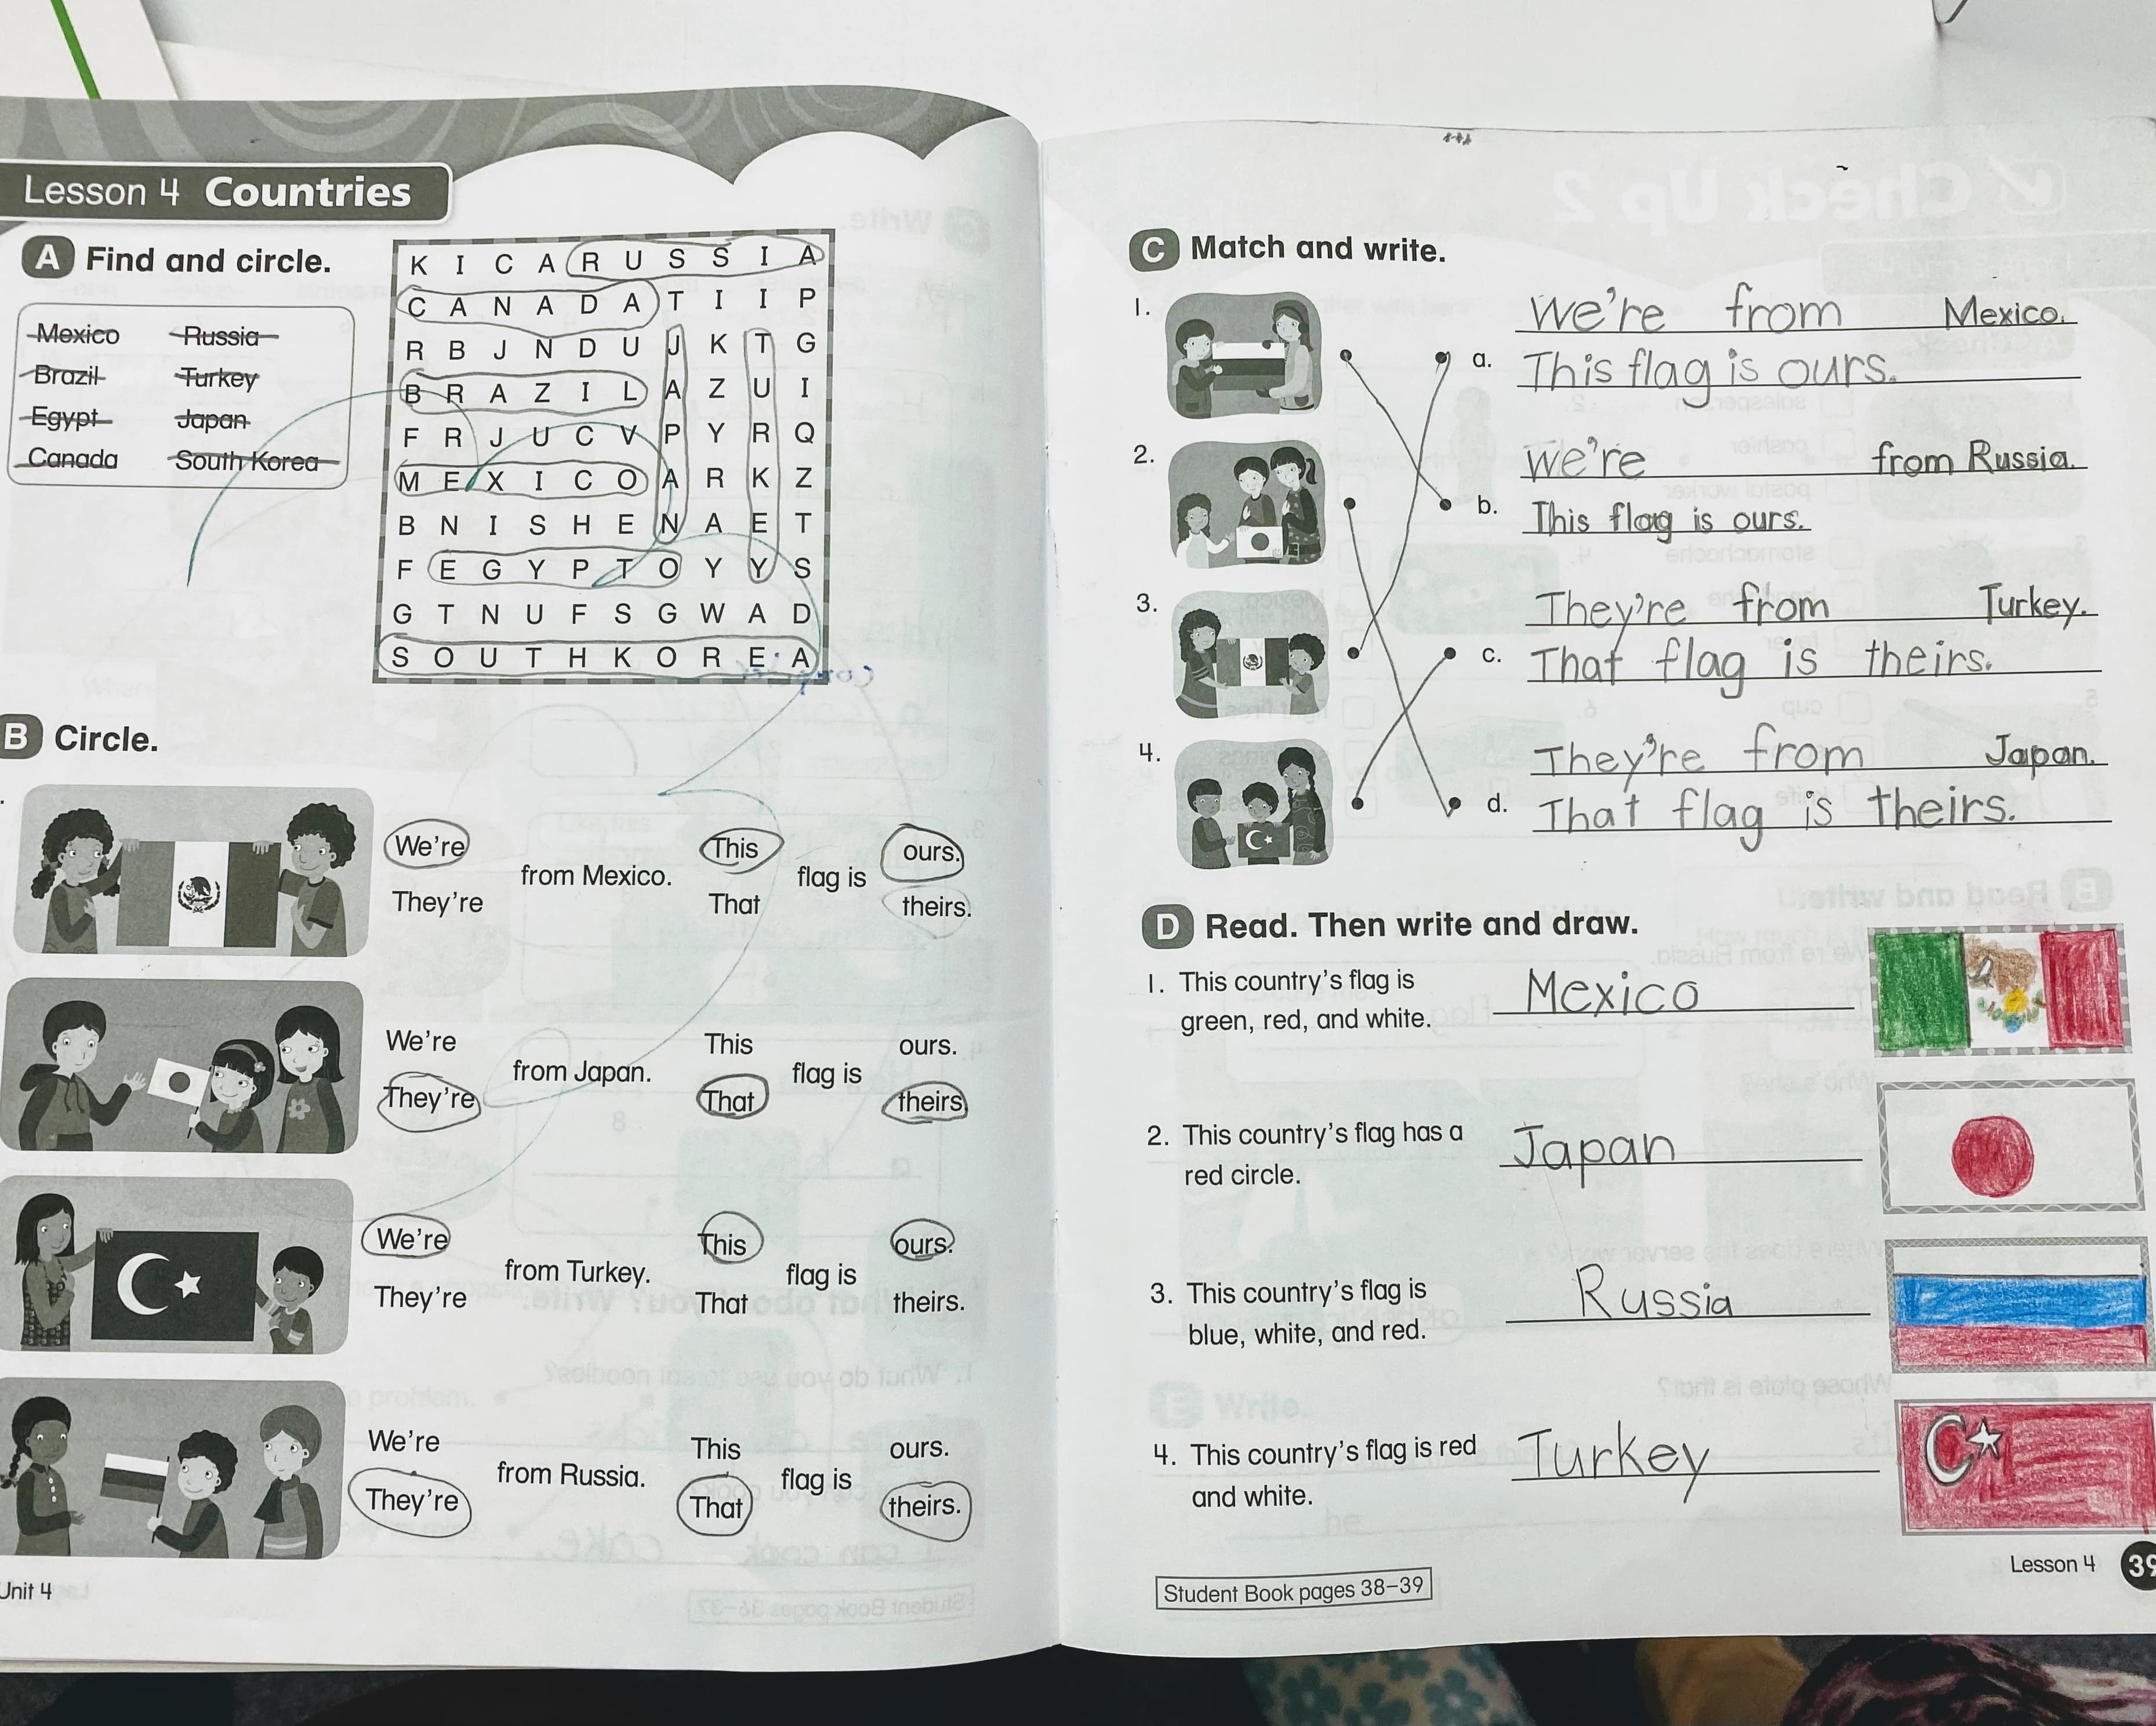 Lesson 4 Countries
A Find and circle.
Mexico Russia
Brazil Turkey
Egypt Japan
Canada South Korea
K I C A R U S S I A
C A N A D A T I I P
R B J N D U J K T G
B R A Z I L A Z U I
F R J U C V P Y R Q
M E X I C O A R K Z
B N I S H E N A E T
F E G Y P T O Y Y S
G T N U F S G W A D
S O U T H K O R E A
B Circle.
We're This ours.
from Mexico. flag is
They're That theirs.
We're This ours.
from Japan. flag is
They're That theirs.
We're This ours.
from Turkey. flag is
They're That theirs.
We're This ours.
from Russia. flag is
They're That theirs.
Unit 4
C Match and write.
1.
a. We're from Mexico.
This flag is ours.
2.
b. We're from Russia.
This flag is ours.
3.
c. They're from Turkey.
That flag is theirs.
4.
d. They're from Japan.
That flag is theirs.
D Read. Then write and draw.
1. This country's flag is
green, red, and white. Mexico
2. This country's flag has a
red circle. Japan
3. This country's flag is
blue, white, and red. Russia
4. This country's flag is red
and white. Turkey
Student Book pages 38–39
Lesson 4 39